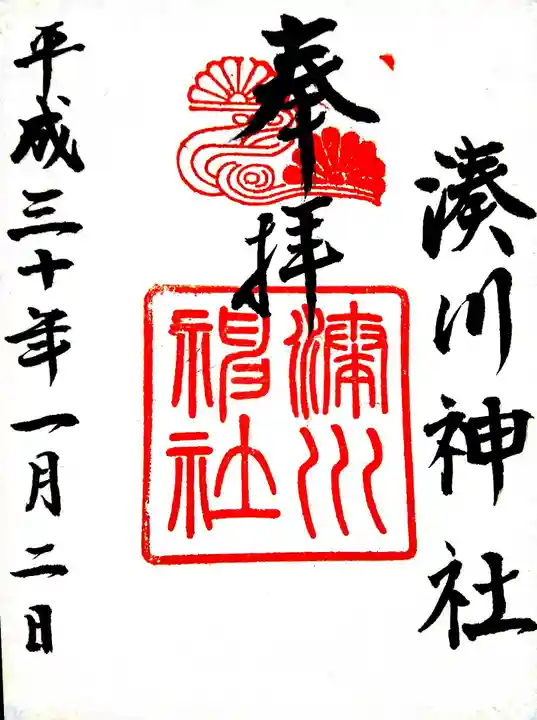 湊川神社
奉拝
湊川
神社
平成三十年一月二日